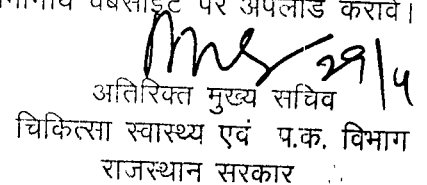 वेबसाईट पर अपलोड करावे।
29/4
अतिरिक्त मुख्य सचिव
चिकित्सा स्वास्थ्य एवं प.क. विभाग
राजस्थान सरकार